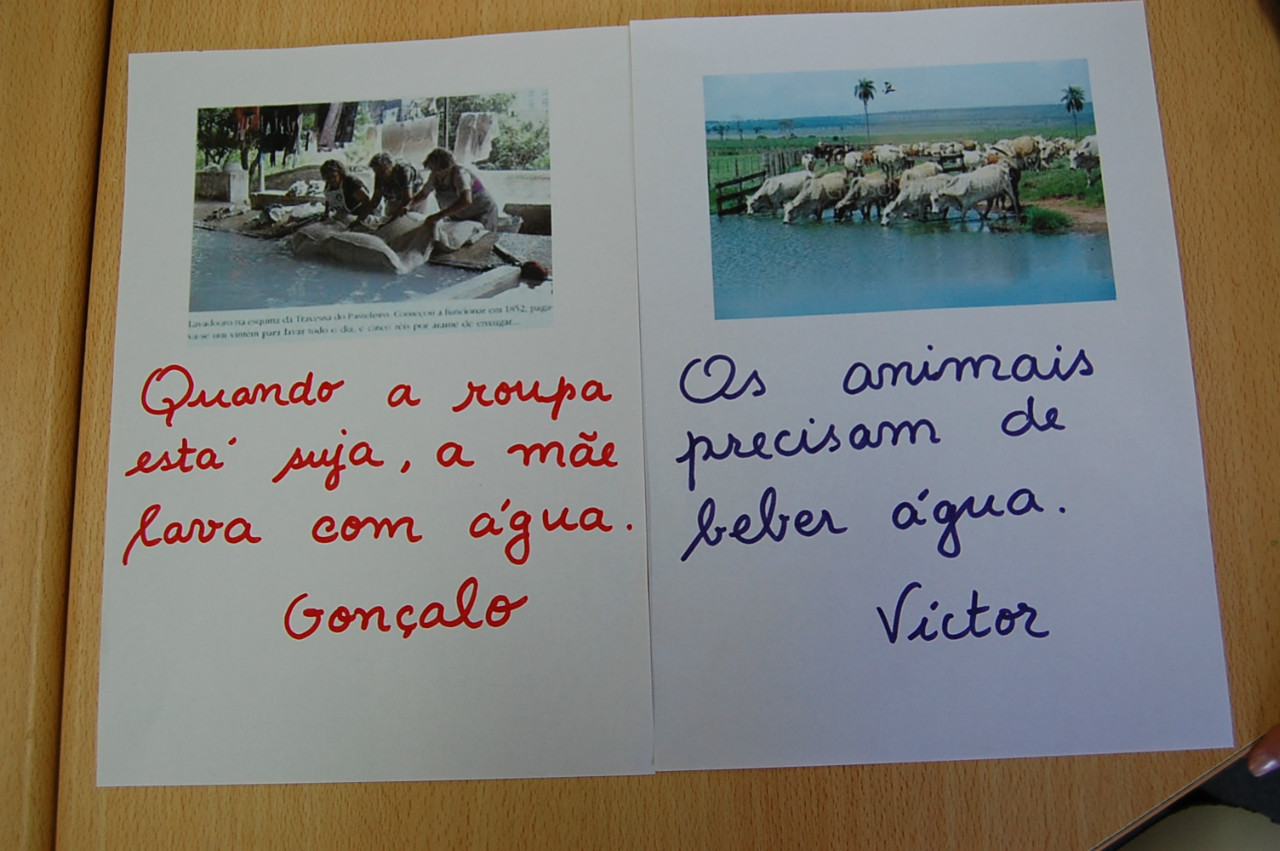 Lavadouro na esquina da Travessa do Pasteleiro. Começou a funcionar em 1852, paga-
va-se um vintém para lavar todo o dia, e cinco réis por arame de enxugar...
Quando a roupa
está suja, a mãe
lava com água.
Gonçalo
Os animais
precisam de
beber água.
Victor